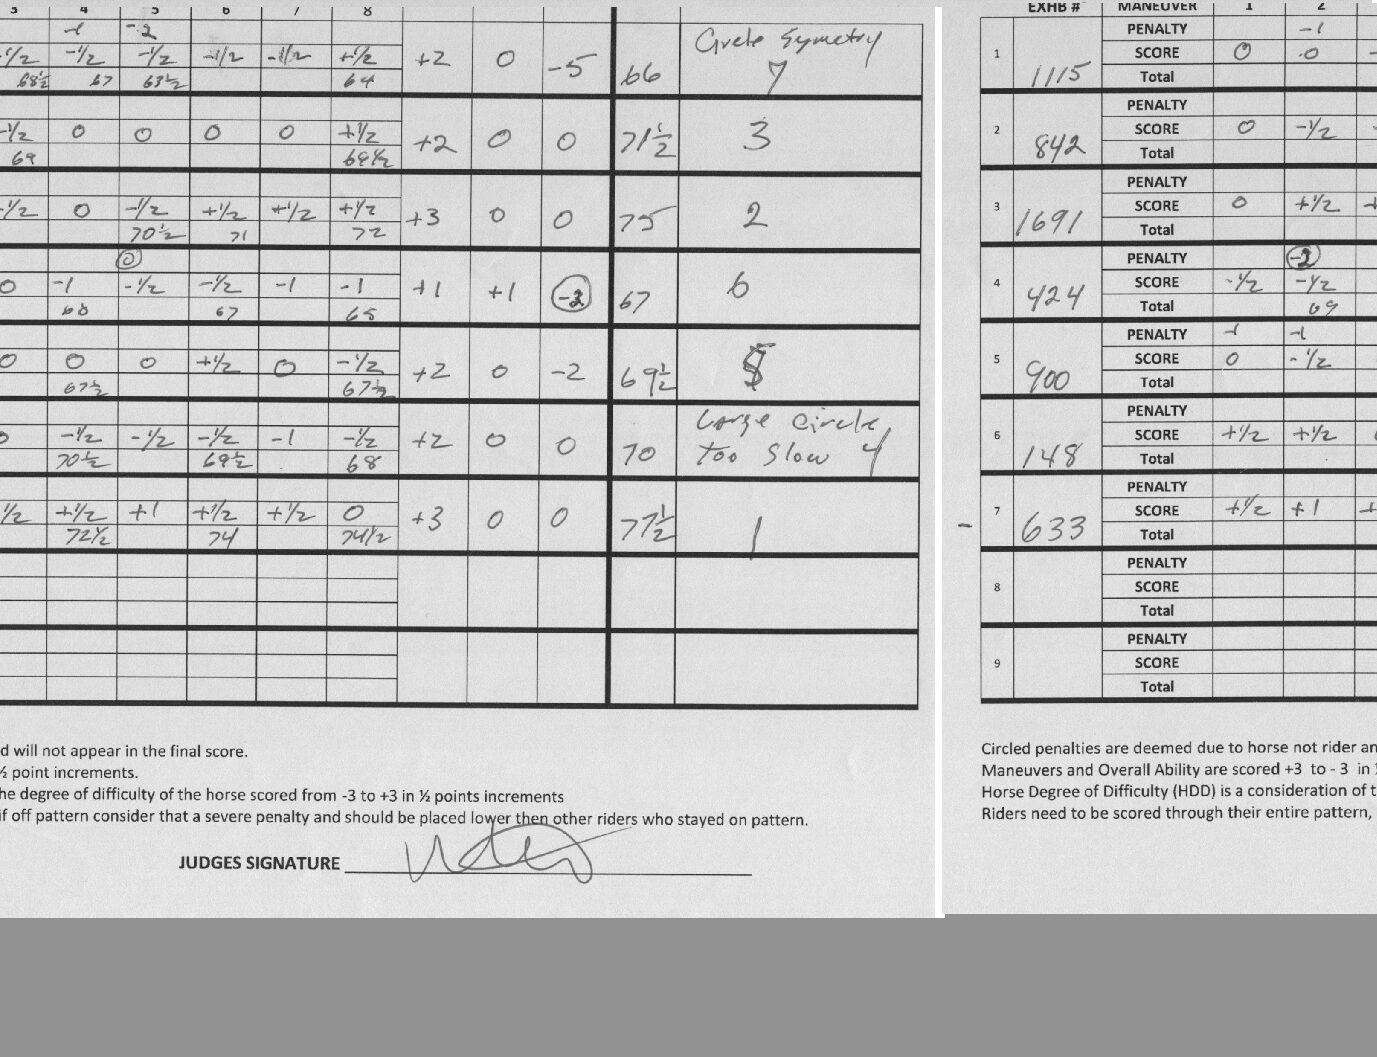 3 4 5 6 7 8
-1 -2
-1/2 -1/2 -1/2 -1/2 -1/2 +1/2 +2 0 -5 66 Circle Symetry
68½ 67 63½ 64 7
-1/2 0 0 0 0 +1/2 +2 0 0 71½ 3
69 69½
-1/2 0 -1/2 +1/2 +1/2 +1/2 +3 0 0 75 2
70½ 71 72
0 -1 -1/2 -1/2 -1 -1 +1 +1 67 6
68 67 65
0 0 0 +1/2 0 -1/2 +2 0 -2 69½ 5
67½ 67½
Large circle
0 -1/2 -1/2 -1/2 -1 -1/2 +2 0 0 70 too slow 4
70½ 69½ 68
1/2 +1/2 +1 +1/2 +1/2 0 +3 0 0 77½ 1
72½ 74 74½
d will not appear in the final score.
½ point increments.
he degree of difficulty of the horse scored from -3 to +3 in ½ points increments
if off pattern consider that a severe penalty and should be placed lower then other riders who stayed on pattern.
JUDGES SIGNATURE
EXHB # MANEUVER 1 2
PENALTY -1
1 1115 SCORE 0 0 -
Total
PENALTY
2 842 SCORE 0 -1/2 -
Total
PENALTY
3 1691 SCORE 0 +1/2 +
Total
PENALTY
4 424 SCORE -1/2 -1/2
Total 69
PENALTY -1 -1
5 900 SCORE 0 -1/2
Total
PENALTY
6 148 SCORE +1/2 +1/2
Total
PENALTY
- 7 633 SCORE +1/2 +1 +
Total
PENALTY
8 SCORE
Total
PENALTY
9 SCORE
Total
Circled penalties are deemed due to horse not rider an
Maneuvers and Overall Ability are scored +3 to - 3 in
Horse Degree of Difficulty (HDD) is a consideration of t
Riders need to be scored through their entire pattern,